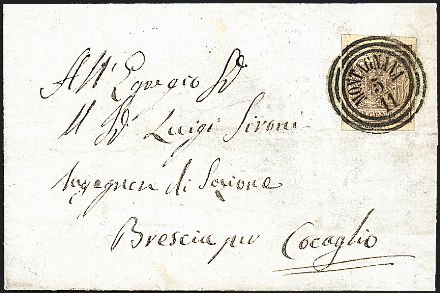 All'Egregio Sr
Il Sr Luigi Sironi
Ingegnere di Sezione
Brescia per Cocaglio
MONTAGNANA
5
11